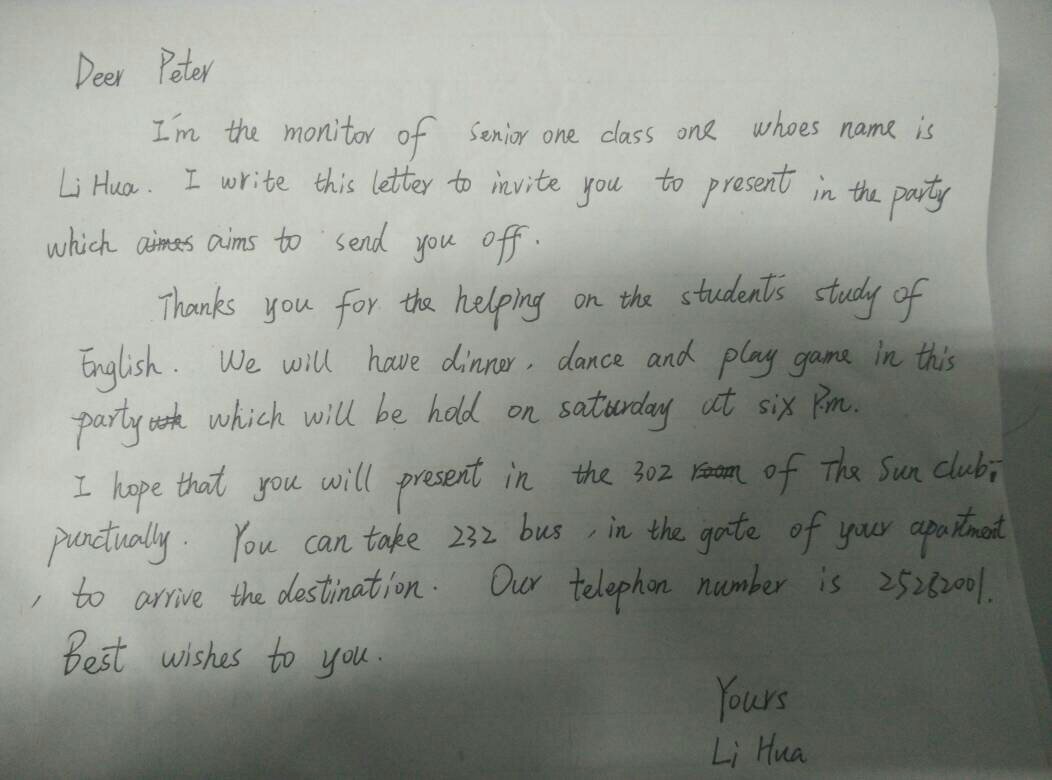 Deer Peter
I'm the monitor of senior one class one whoes name is
Li Hua. I write this letter to invite you to present in the party
which aimes aims to send you off.
Thanks you for the helping on the student's study of
English. We will have dinner, dance and play game in this
party which will be hold on saturday at six P.m.
I hope that you will present in the 302 room of The Sun club,
punctually. You can take 232 bus, in the gate of your apartment
, to arrive the destination. Our telephon number is 25282001.
Best wishes to you.
Yours
Li Hua